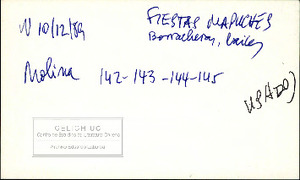 N 10/12/89
FIESTAS MAPUCHES
Borracheras, bailes
Molina 142-143-144-145
USADO)
CELICH UC
Centro de Estudios de Literatura Chilena